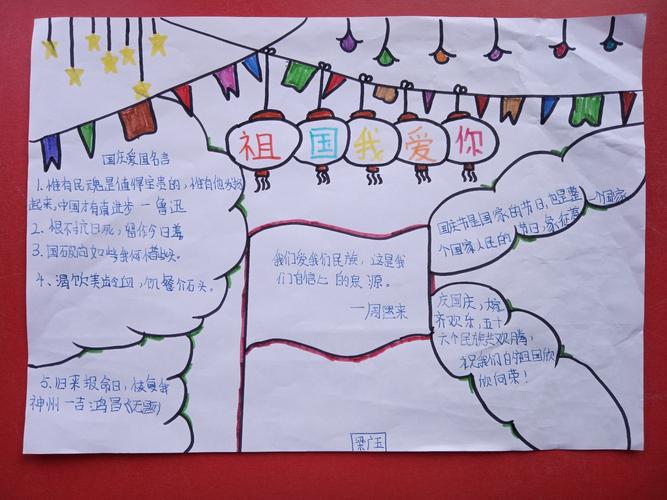 祖国我爱你
国庆爱国名言
1.惟有民魂是值得宝贵的,惟有他发扬
起来,中国才有真进步一鲁迅
2、恨不抗日死,留作今日羞
3、国破尚如此我何惜此头。
4、渴饮美龄血,饥餐介石头。
5.归来报命日,恢复我
神州一吉鸿昌《无题》
我们爱我们民族,这是我
们自信心的泉源。
一周恩来
国庆节是国家的节日,也是整一个国家
个国家人民的节日,象征着
庆国庆,
齐欢乐,五十
六个民族共欢腾,
祝我们的祖国欣
欣向荣!
梁广五